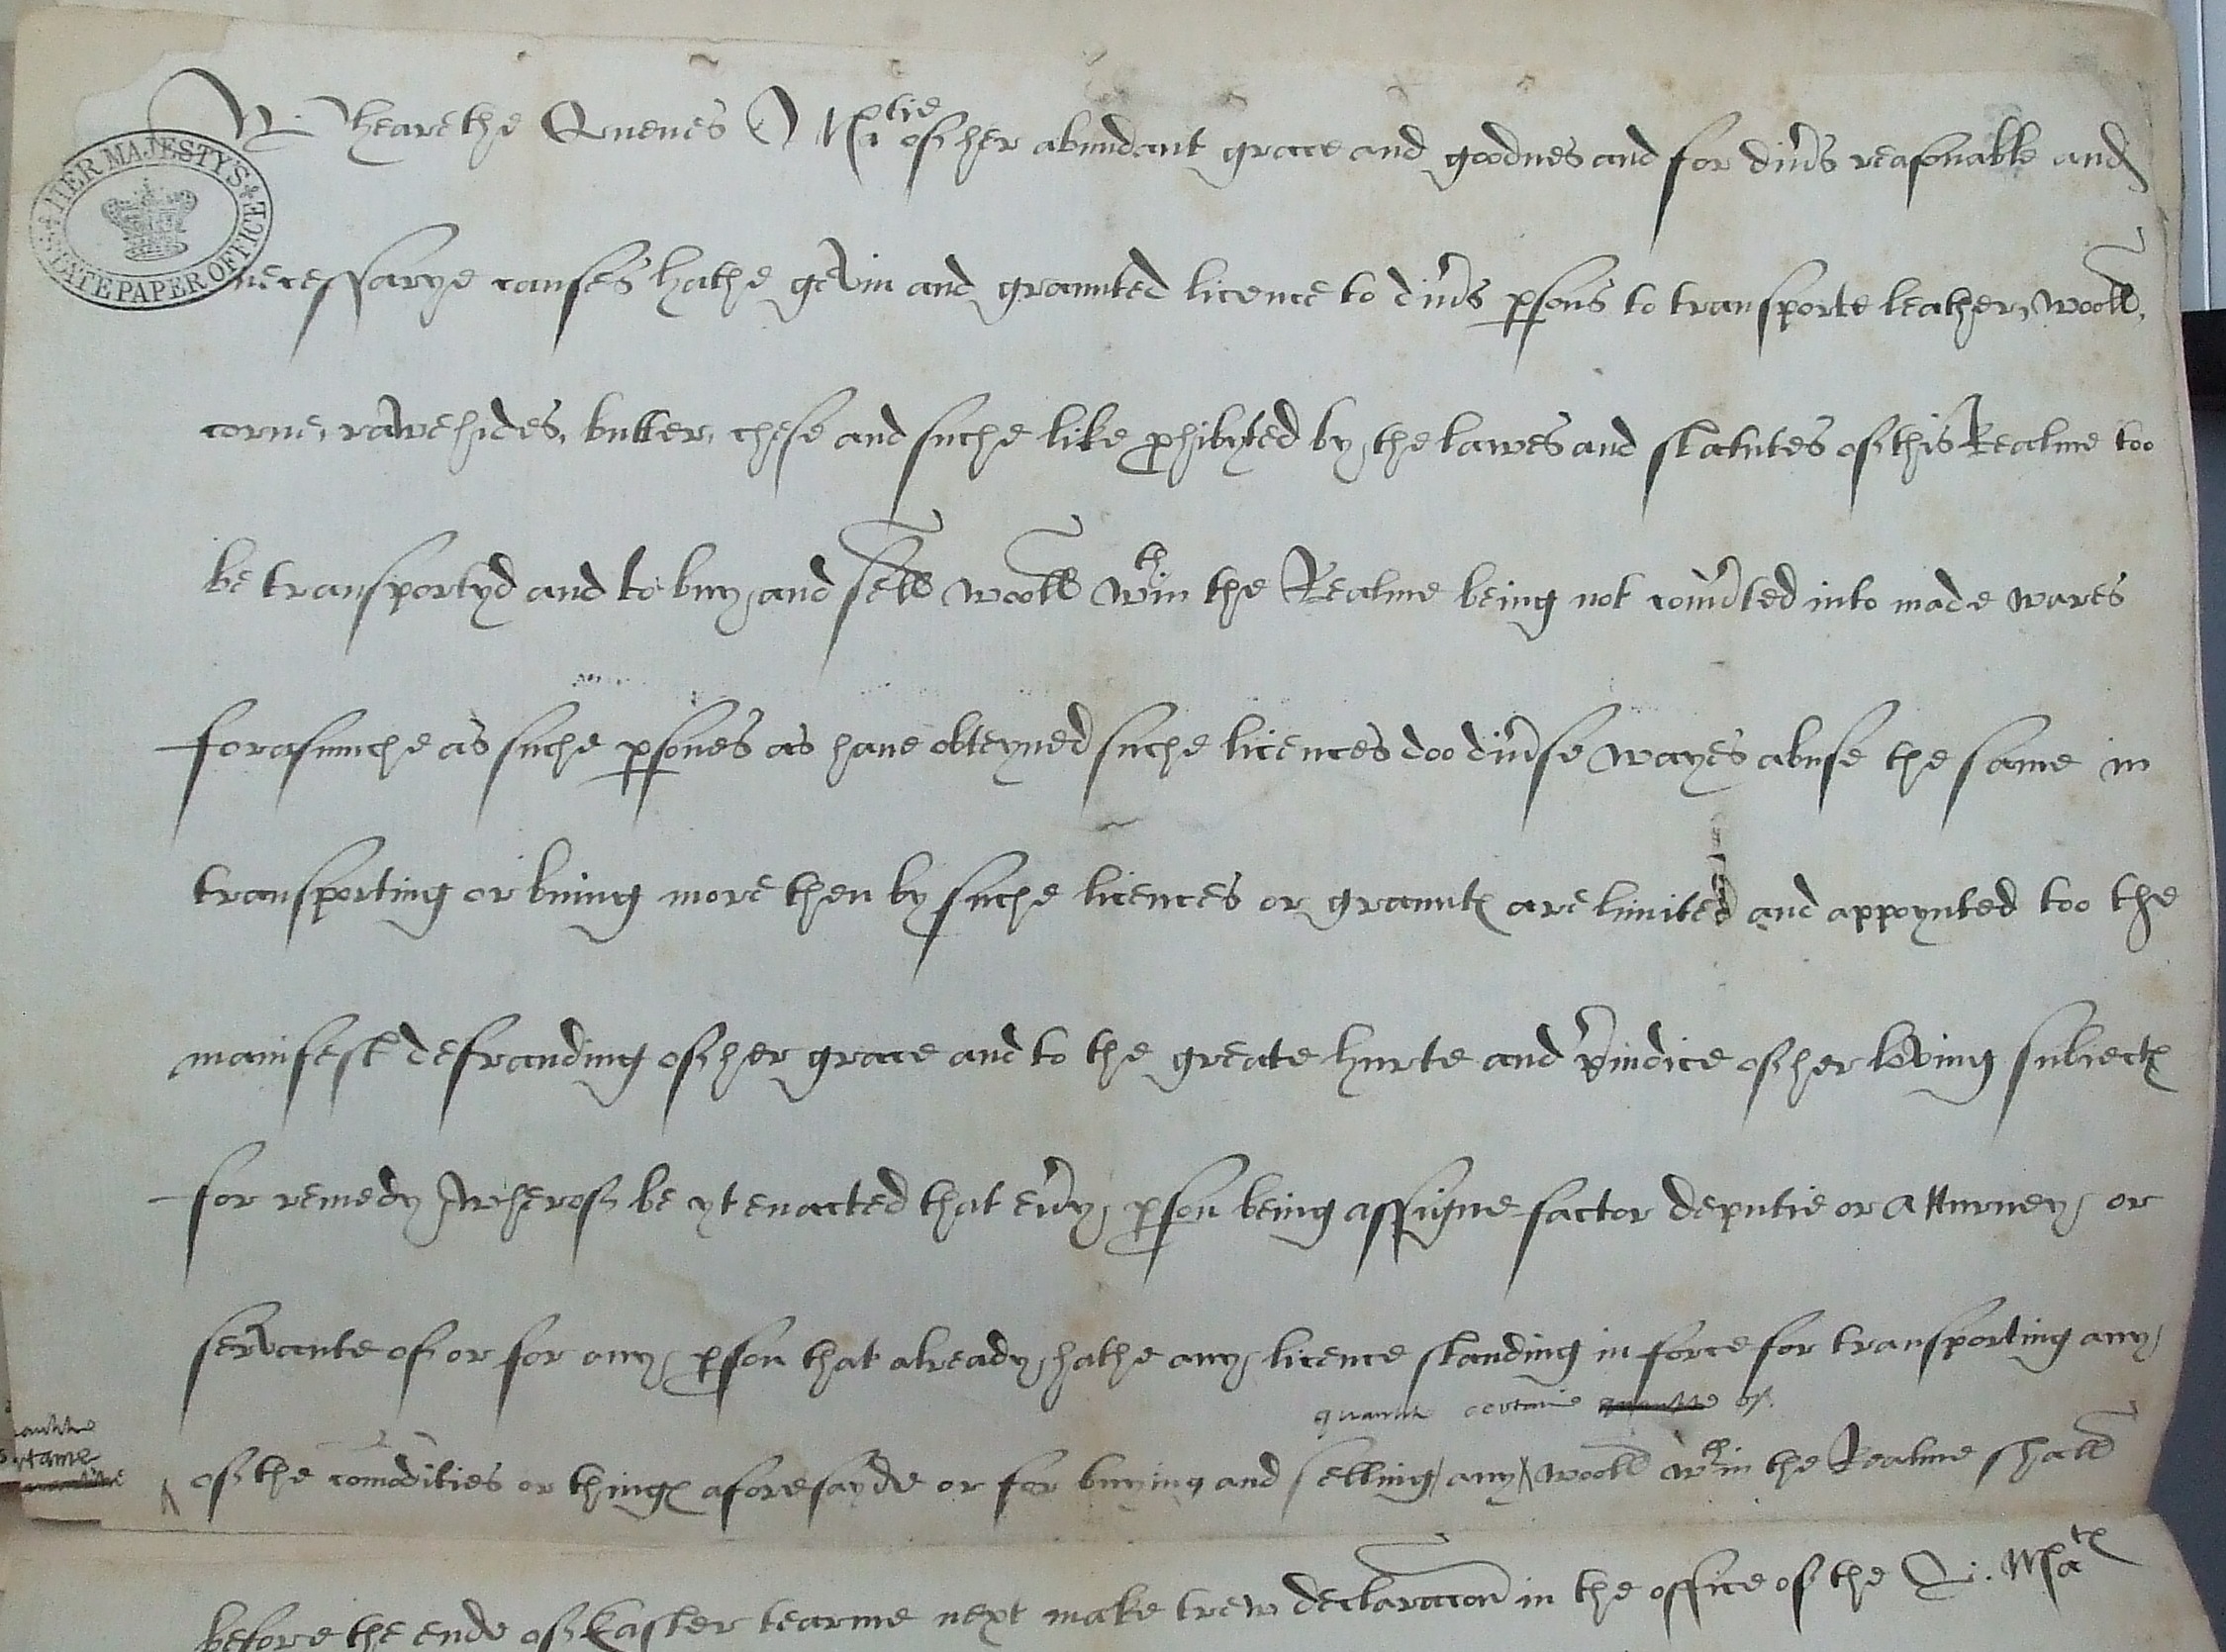 HER MAJESTY'S STATE PAPER OFFICE
Wheare the Quenes Matie of her abundant grace and goodnes and for divs reasonable and
necessarye causes hathe gevin and graunted licence to divs psons to transporte leather, wooll,
corne, rawe hides, butter, chese and suche like phibyted by the lawes and statutes of this Realme too
be transportyd and to buy and sell wooll wthin the Realme being not convted into made wares
forasmuche as suche psones as have obteyned suche licences doo divse wayes abuse the same in
transporting or buing more then by suche licences or grauntes are limited and appoynted too the
manifest defrauding of her grace and to the greate hurte and piudice of her loving subiectes
for remedy wherof be yt enacted that evy pson being assigne factor deputie or atturney or
servante of or for any pson that already hathe any licence standing in force for transporting any
certaine of
of the comodities or thinges aforesayde or for buying and selling any wooll wthin the Realme shall
before the ende of Easter tearme next make trew declaracon in the office of the Q. Mates